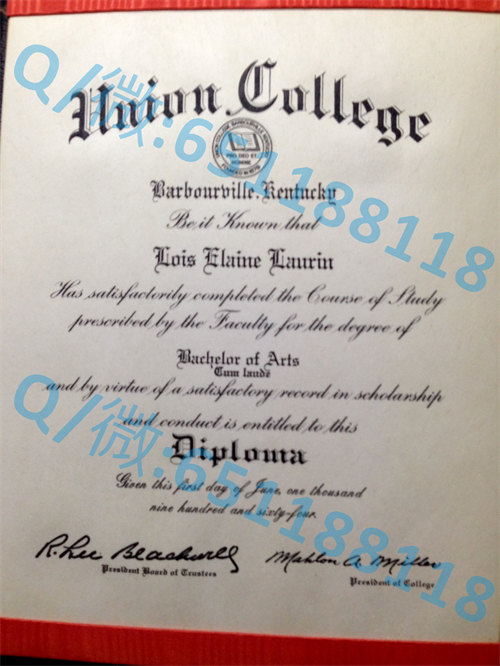 Union College
UNION COLLEGE BARBOURVILLE KENTUCKY
PRO DEO ET
HOMINE
FOUNDED IN 1879
Barbourville, Kentucky
Be it Known that
Lois Elaine Laurin
Has satisfactorily completed the Course of Study
prescribed by the Faculty for the degree of
Bachelor of Arts
Cum laude
and by virtue of a satisfactory record in scholarship
and conduct is entitled to this
Diploma
Given this first day of June, one thousand
nine hundred and sixty-four.
R. Lee Blackwell
Mahlon A. Miller
President Board of Trustees
President of College
Q/微:651188118
Q/微:651188118